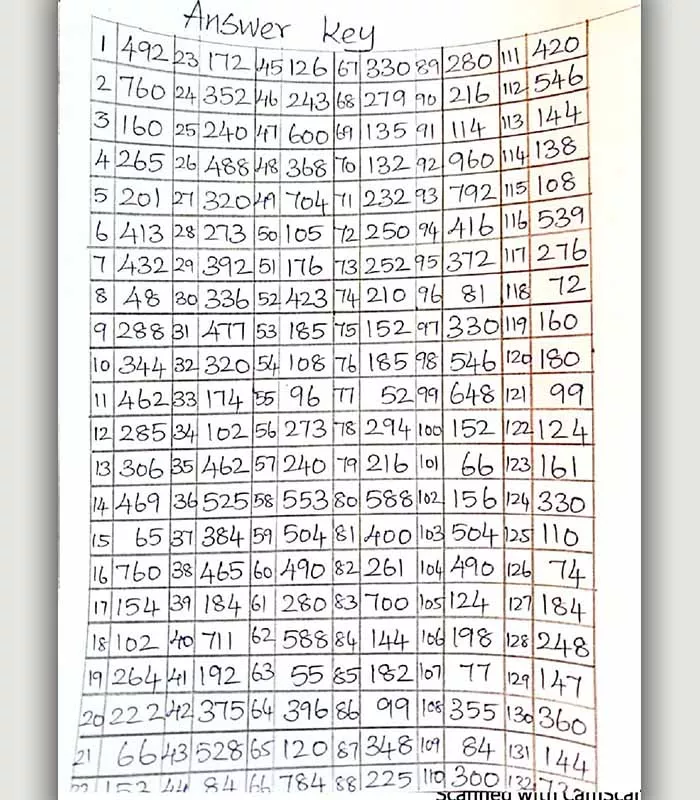 Answer Key
1 492 23 172 45 126 67 330 89 280 111 420
2 760 24 352 46 243 68 279 90 216 112 546
3 160 25 240 47 600 69 135 91 114 113 144
4 265 26 488 48 368 70 132 92 960 114 138
5 201 27 320 49 704 71 232 93 792 115 108
6 413 28 273 50 105 72 250 94 416 116 539
7 432 29 392 51 176 73 252 95 372 117 276
8 48 30 336 52 423 74 210 96 81 118 72
9 288 31 477 53 185 75 152 97 330 119 160
10 344 32 320 54 108 76 185 98 546 120 180
11 462 33 174 55 96 77 52 99 648 121 99
12 285 34 102 56 273 78 294 100 152 122 124
13 306 35 462 57 240 79 216 101 66 123 161
14 469 36 525 58 553 80 588 102 156 124 330
15 65 37 384 59 504 81 400 103 504 125 110
16 760 38 465 60 490 82 261 104 490 126 74
17 154 39 184 61 280 83 700 105 124 127 184
18 102 40 711 62 588 84 144 106 198 128 248
19 264 41 192 63 55 85 182 107 77 129 147
20 222 42 375 64 396 86 99 108 355 130 360
21 66 43 528 65 120 87 348 109 84 131 144
152 44 84 66 784 88 225 110 300 132
Scanned with CamScan